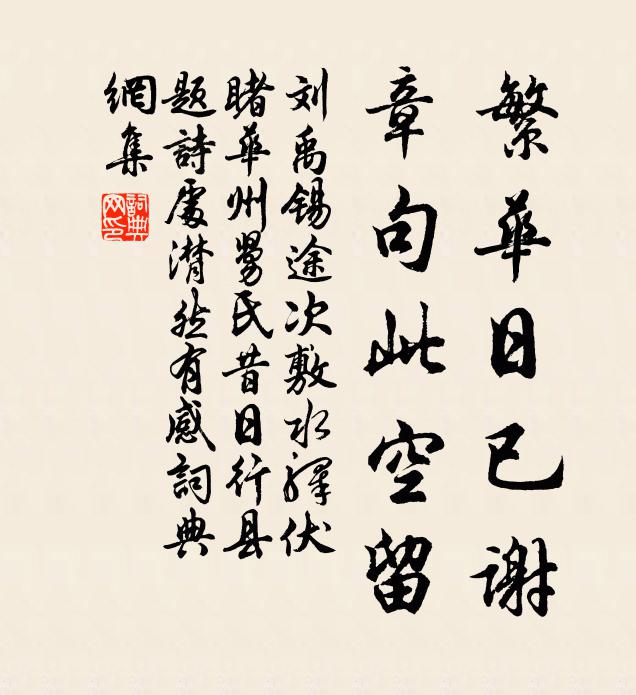 繁華日已謝
章句此空留
刘禹锡途次敷水驛伏
睹華州舅氏昔日行县
題詩處潸然有感詞典
網集
詞典网印